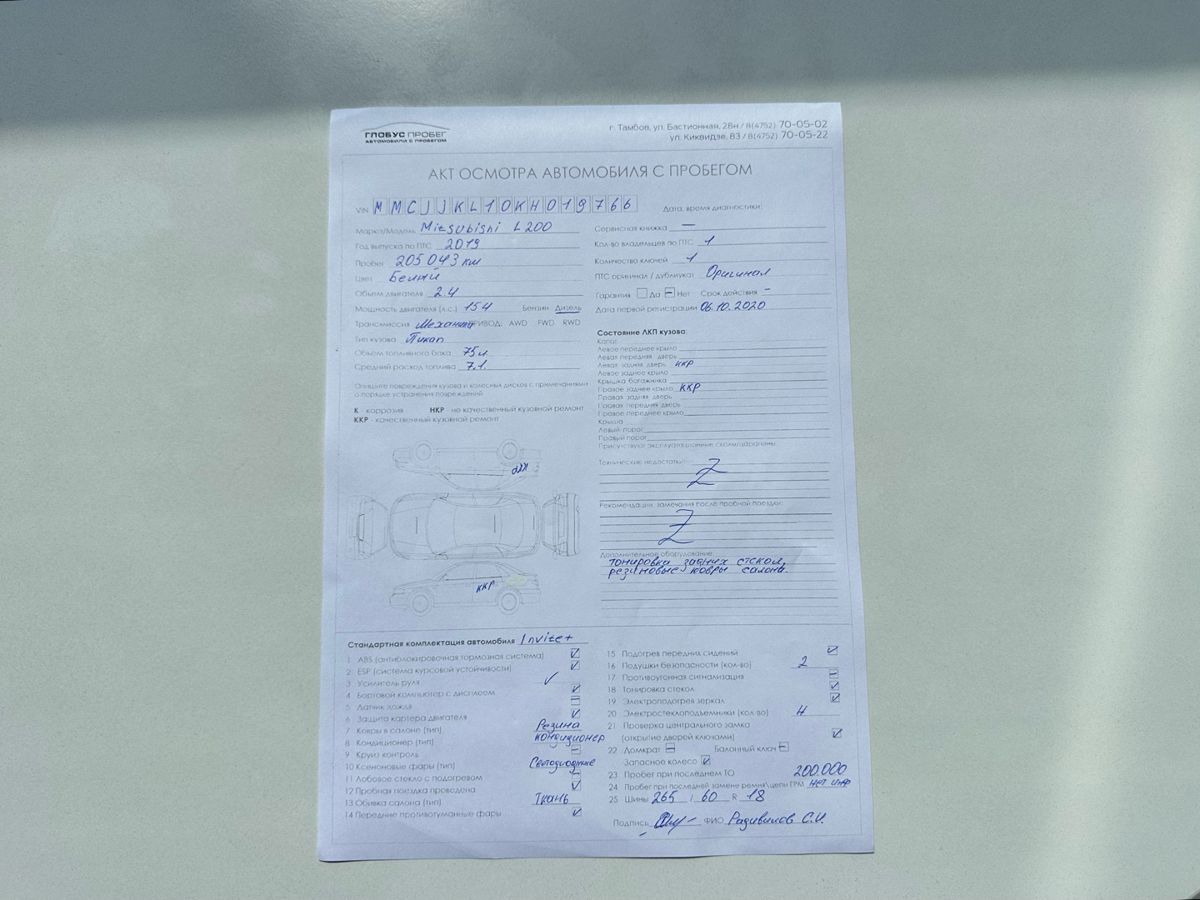 ГЛОБУС ПРОБЕГ
АВТОМОБИЛИ С ПРОБЕГОМ
г. Тамбов, ул. Бастионная, 28н / 8(4752) 70-05-02
ул. Киквидзе, 83 / 8(4752) 70-05-22
АКТ ОСМОТРА АВТОМОБИЛЯ С ПРОБЕГОМ
VIN MMCJJKL10KH019766
Дата, время диагностики:
Марка/Модель Mitsubishi L200
Год выпуска по ПТС 2019
Пробег 205 043 км
Цвет Белый
Объем двигателя 2.4
Мощность двигателя (л.с.) 154 Бензин Дизель
Трансмиссия Механика ПРИВОД: AWD FWD RWD
Тип кузова Пикап
Объем топливного бака 75 л.
Средний расход топлива 7.1.
Сервисная книжка —
Кол-во владельцев по ПТС 1
Количество ключей 1
ПТС оригинал / дубликат Оригинал
Гарантия Да Нет Срок действия –
Дата первой регистрации 06.10.2020
Опишите повреждения кузова и колесных дисков с примечаниями
о порядке устранения повреждений
К - коррозия НКР - не качественный кузовной ремонт
ККР - качественный кузовной ремонт
ККР
ККР
Состояние ЛКП кузова:
Капот
Левое переднее крыло
Левая передняя дверь
Левая задняя дверь ККР
Левое заднее крыло
Крышка багажника
Правое заднее крыло ККР
Правая задняя дверь
Правая передняя дверь
Правое переднее крыло
Крыша
Левый порог
Правый порог
Присутствуют эксплуатационные сколы/царапины
Технические недостатки:
Z
Рекомендации, замечания после пробной поездки:
Z
Дополнительное оборудование:
тонировка задних стекол,
резиновые ковры салона.
Стандартная комплектация автомобиля Invite+
1 ABS (антиблокировочная тормозная система)
2 ESP (система курсовой устойчивости)
3 Усилитель руля
4 Бортовой компьютер с дисплеем
5 Датчик дождя
6 Защита картера двигателя
7 Ковры в салоне (тип) Резина
8 Кондиционер (тип) кондиционер
9 Круиз контроль
10 Ксеноновые фары (тип) Светодиодные
11 Лобовое стекло с подогревом
12 Пробная поездка проведена
13 Обивка салона (тип) Ткань
14 Передние противотуманные фары
15 Подогрев передних сидений
16 Подушки безопасности (кол-во) 2
17 Противоугонная сигнализация
18 Тонировка стекол
19 Электроподогрев зеркал
20 Электростеклоподъемники (кол-во) 4
21 Проверка центрального замка
(открытие дверей ключами)
22 Домкрат Балонный ключ
Запасное колесо
23 Пробег при последнем ТО 200.000
24 Пробег при последней замене ремня\цепи ГРМ нет инф
25 Шины 265 / 60 R 18
Подпись ФИО Радивилов С.И.